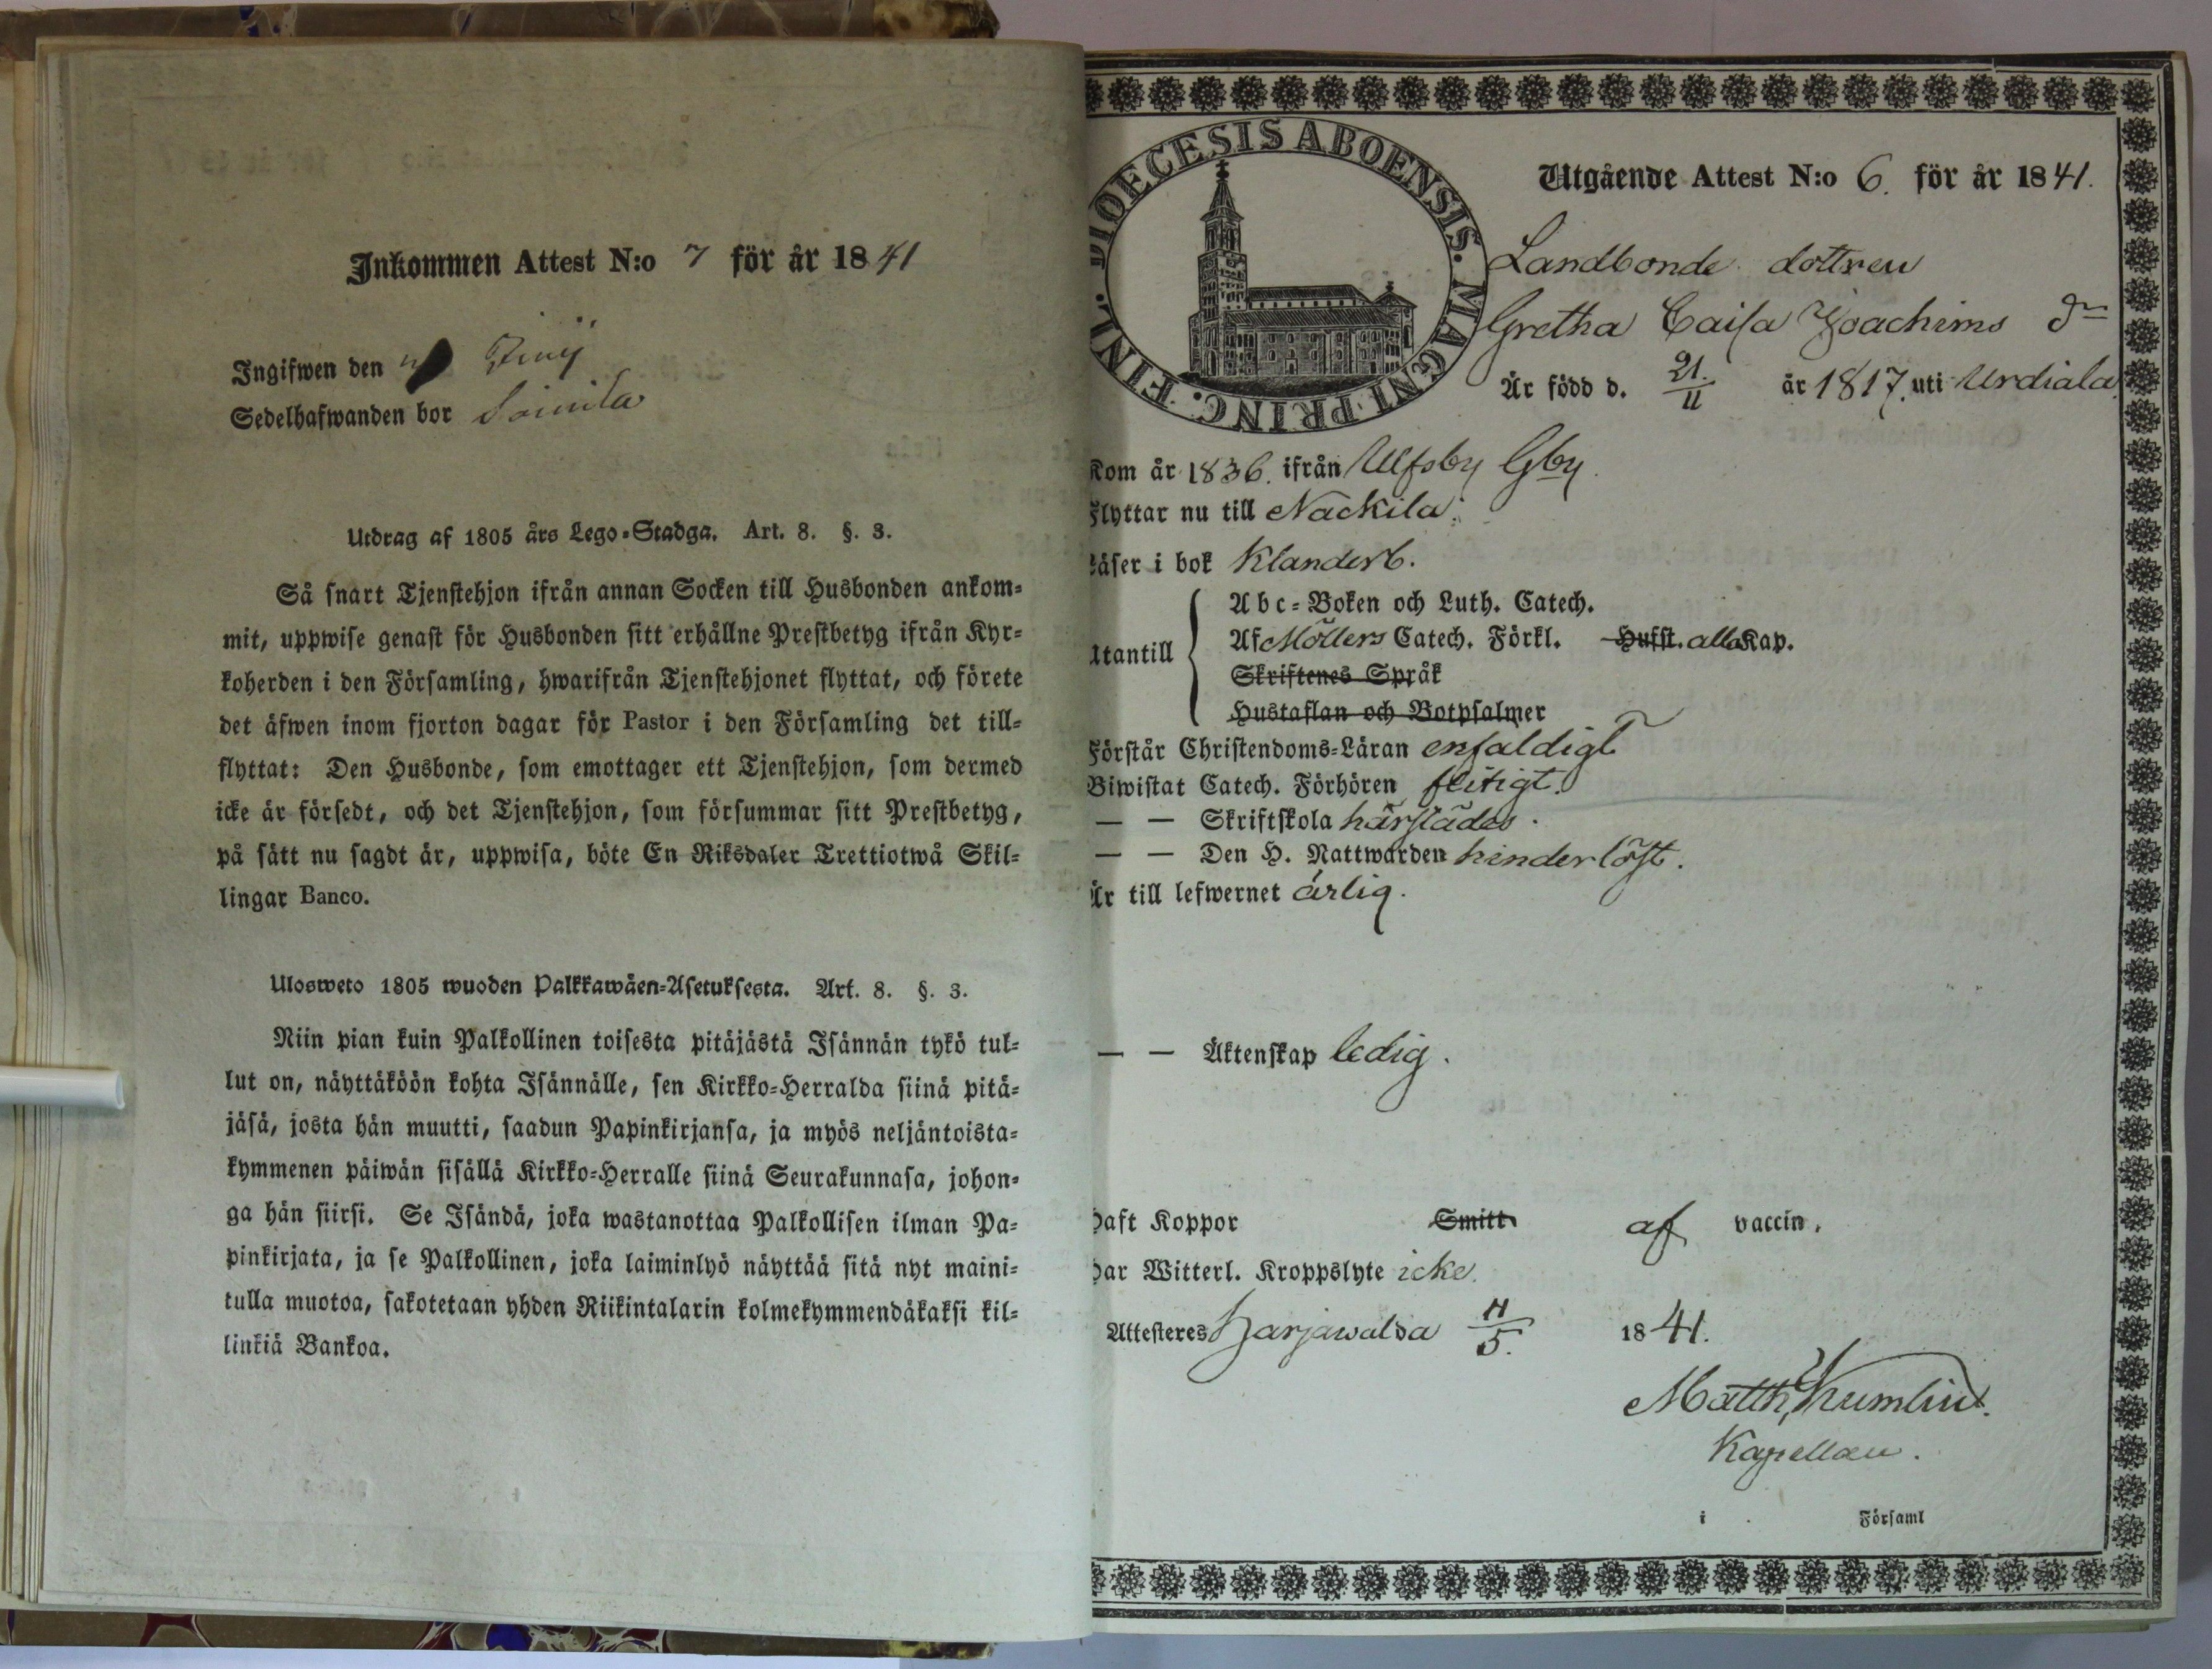 Inkommen Attest N:o 7 för år 1841
Ingifwen den Junij
Sedelhafwanden bor Soinila
Utdrag af 1805 års Lego-Stadga. Art. 8. §. 3.
Så snart Tjenstehjon ifrån annan Socken till Husbonden ankom-
mit, uppwise genast för Husbonden sitt erhållne Prestbetyg ifrån Kyr-
koherden i den Församling, hwarifrån Tjenstehjonet flyttat, och förete
det äfwen inom fjorton dagar för Pastor i den Församling det till-
flyttat: Den Husbonde, som emottager ett Tjenstehjon, som dermed
icke är försedt, och det Tjenstehjon, som försummar sitt Prestbetyg,
på sätt nu sagdt är, uppwisa, böte En Riksdaler Trettiotwå Skil-
lingar Banco.
Ulosweto 1805 wuoden Palkkawäen-Asetuksesta. Art. 8. §. 3.
Niin pian kuin Palkollinen toisesta pitäjästä Isännän tykö tul-
lut on, näyttäköön kohta Isännälle, sen Kirkko-Herralda siinä pitä-
jäsä, josta hän muutti, saadun Papinkirjansa, ja myös neljäntoista-
kymmenen päiwän sisällä Kirkko-Herralle siinä Seurakunnasa, johon-
ga hän siirsi. Se Isändä, joka wastanottaa Palkollisen ilman Pa-
pinkirjata, ja se Palkollinen, joka laiminlyö näyttää sitä nyt maini-
tulla muotoa, sakotetaan yhden Riikintalarin kolmekymmendäkaksi kil-
linkiä Bankoa.
FINL. DIOECESIS ABOENSIS. MAGNI PRINC.
Utgående Attest N:o 6. för år 1841.
Landbonde dottren
Gretha Caisa Joachims dr
Är född d. 21/11 år 1817. uti Urdiala
Kom år 1836. ifrån Ulfsby Gby.
Flyttar nu till Nackila.
Läser i bok Klanderl.
Utantill
Abc-Boken och Luth. Catech.
Af Möllers Catech. Förkl. Hufst. alla Kap.
Skriftenes Språk
Hustaflan och Botpsalmer
Förstår Christendoms-Läran enfaldigt
Biwistat Catech. Förhören flitigt.
— — Skriftskola härstädes.
— — Den H. Nattwarden hinderlöst.
Är till lefwernet ärlig.
— — Äktenskap ledig.
Haft Koppor Smitt af vaccin.
Har Witterl. Kroppslyte icke.
Attesteres Harjawalda 11/5. 1841.
Matth. Kumlin.
Kapellan.
i Församl